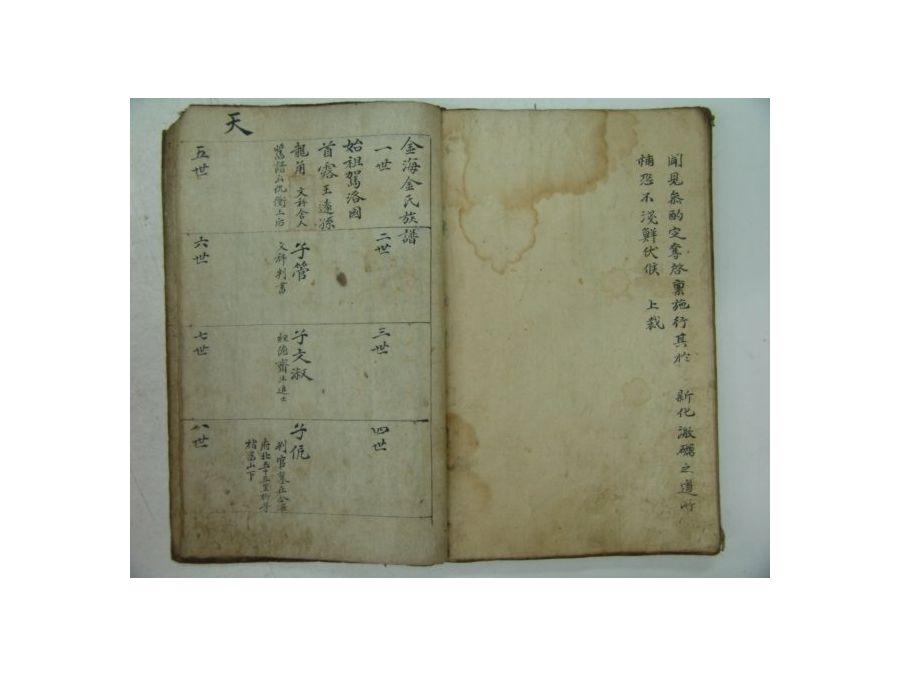 聞見參酌定奪啓稟施行其於 新化激礪之道所
補恐不淺鮮伏候 上裁
天
金海金氏族譜
一世
始祖駕洛國
首露王遠孫
龍角 文科舍人
二世
子管
文科判書
三世
子文淑
四世
子伲
判官墓在金海
五世
六世
七世
八世